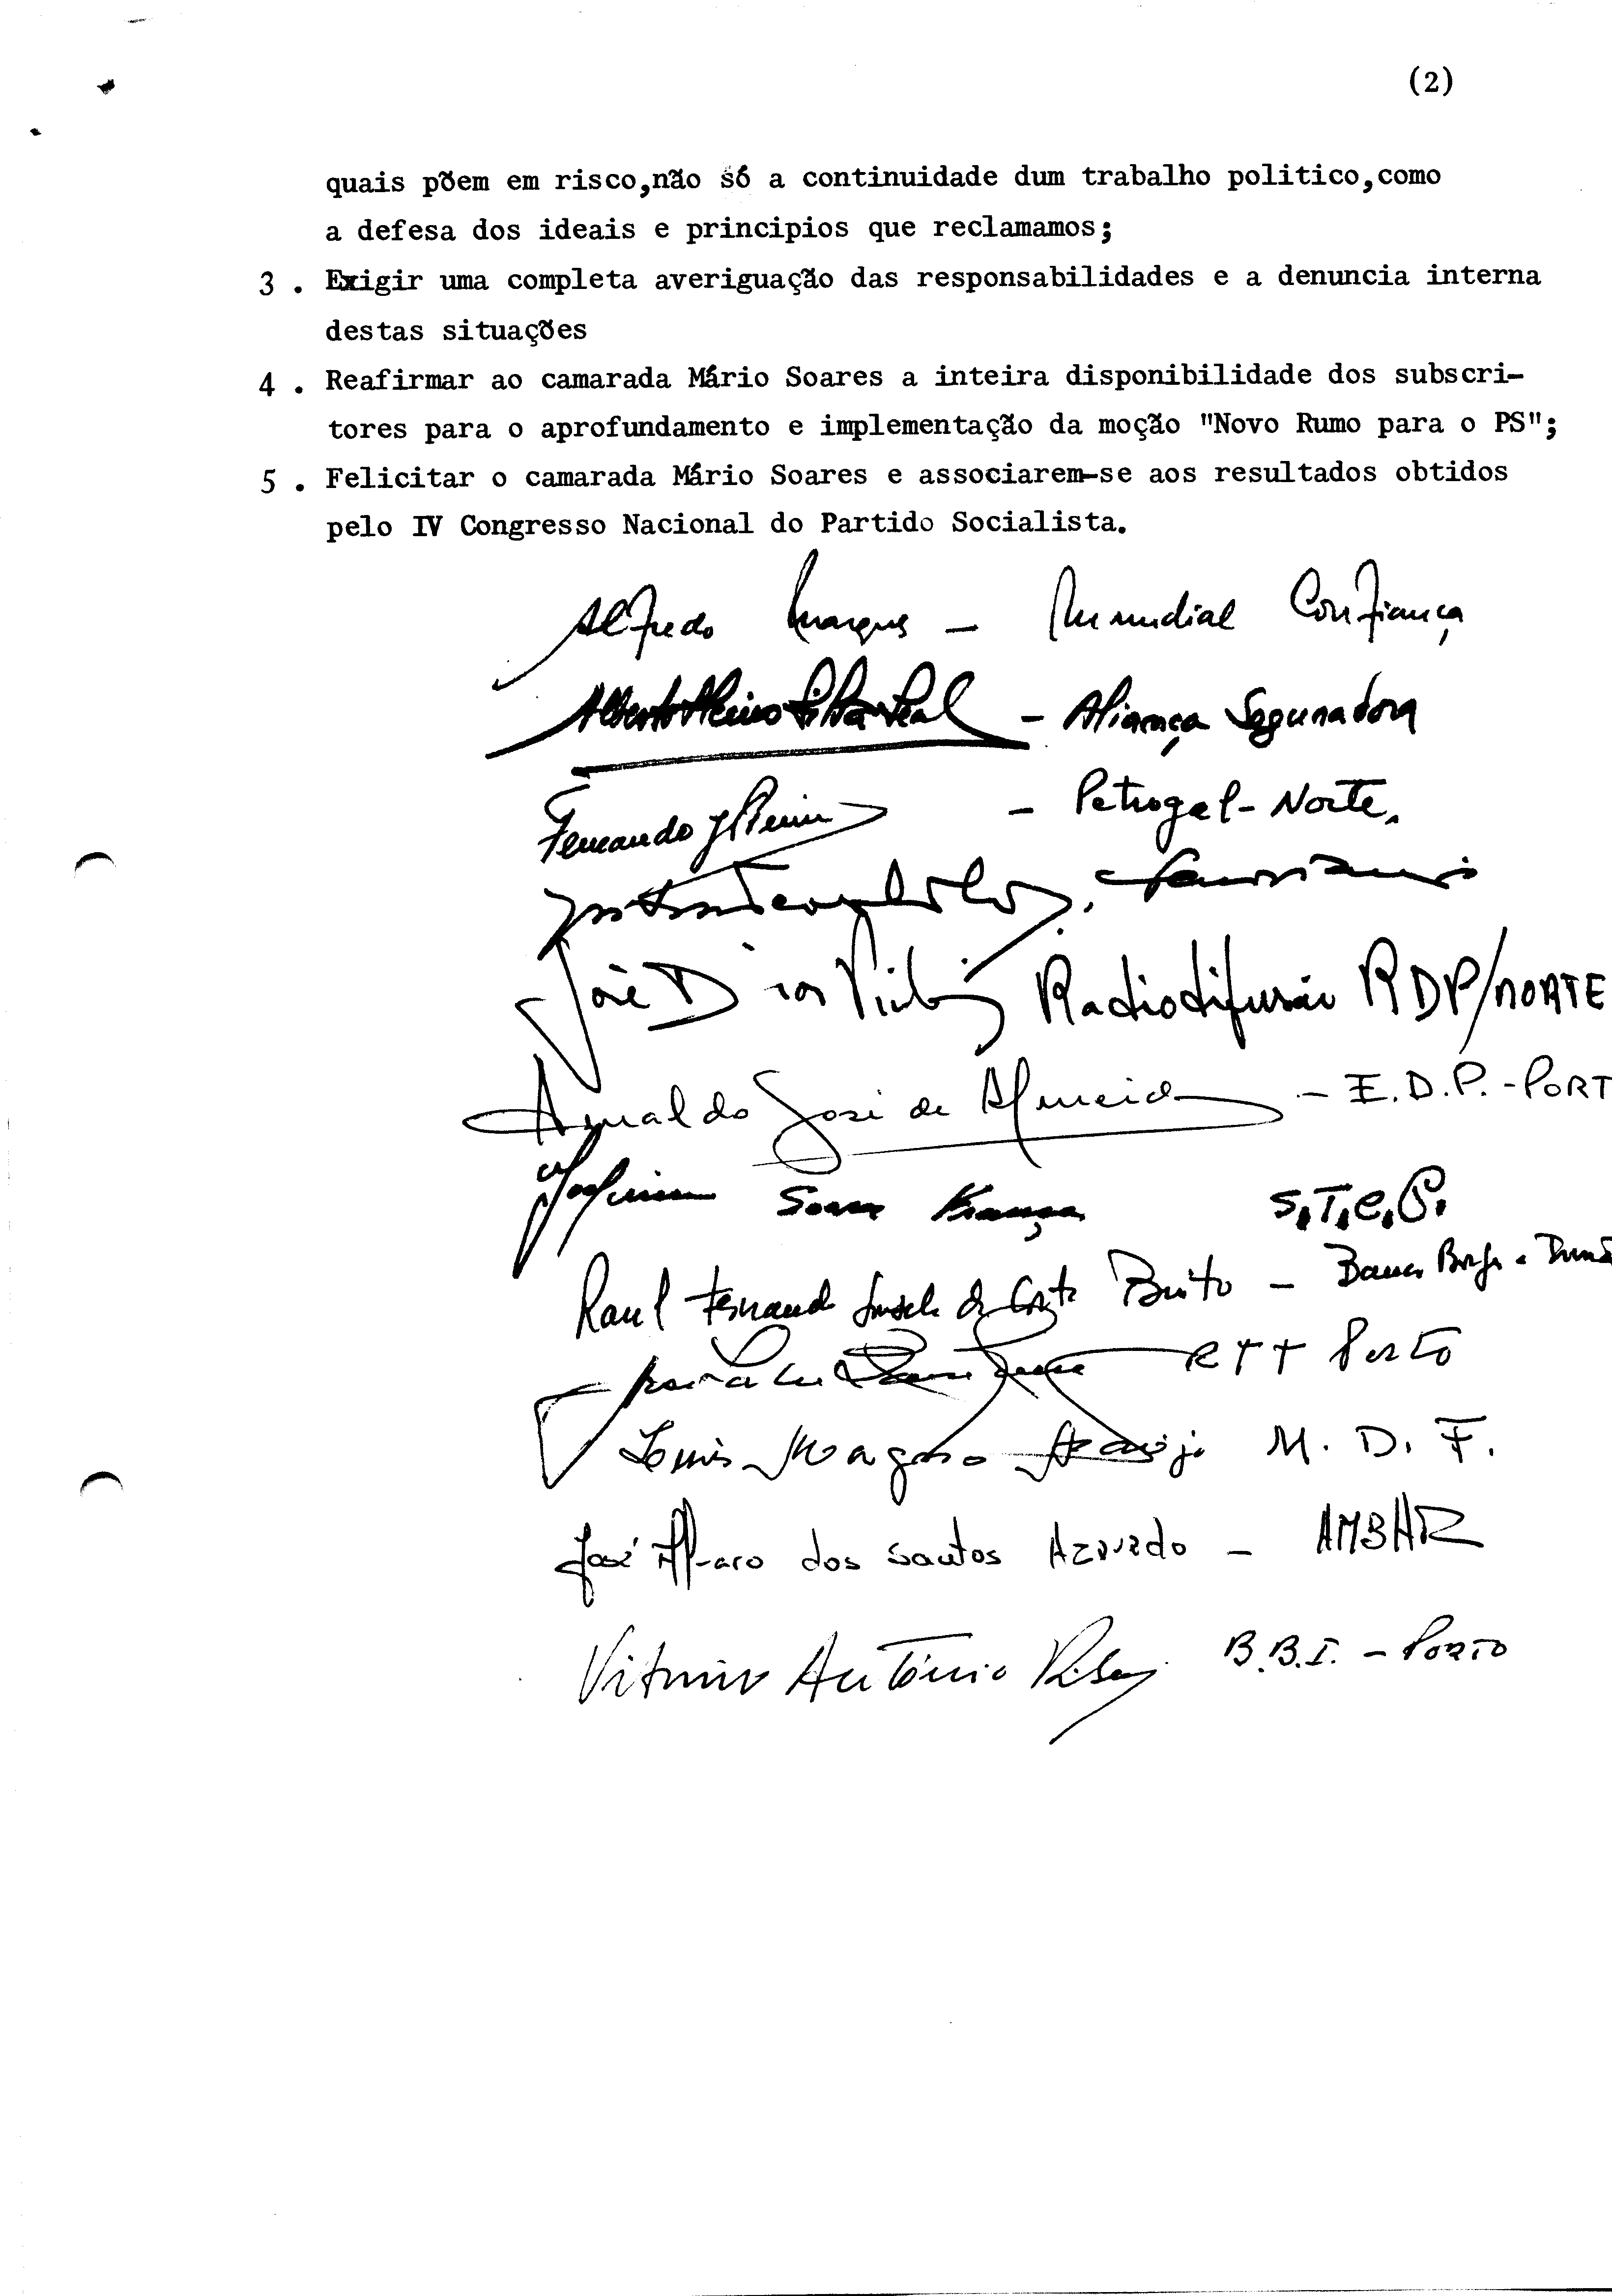 (2)
quais põem em risco,não só a continuidade dum trabalho politico,como
a defesa dos ideais e principios que reclamamos;
3 . Exigir uma completa averiguação das responsabilidades e a denuncia interna
destas situações
4 . Reafirmar ao camarada Mário Soares a inteira disponibilidade dos subscri-
tores para o aprofundamento e implementação da moção "Novo Rumo para o PS";
5 . Felicitar o camarada Mário Soares e associarem-se aos resultados obtidos
pelo IV Congresso Nacional do Partido Socialista.
Alfredo Marques - Mundial Confiança
Alberto - Aliança Seguradora
Fernando - Petrogal - Norte.
José Dias Radiodifusão RDP/NORTE
Arnaldo José de Almeida - E.D.P. - PORT
Joaquim Sousa França S.T.C.P.
Raul Fernando da Costa Brito - Banco Borges e Irmã
RTT Porto
Luis Araújo M. D. F.
José Alvaro dos Santos Azevedo - AMBAR
António B.B.I. - PORTO